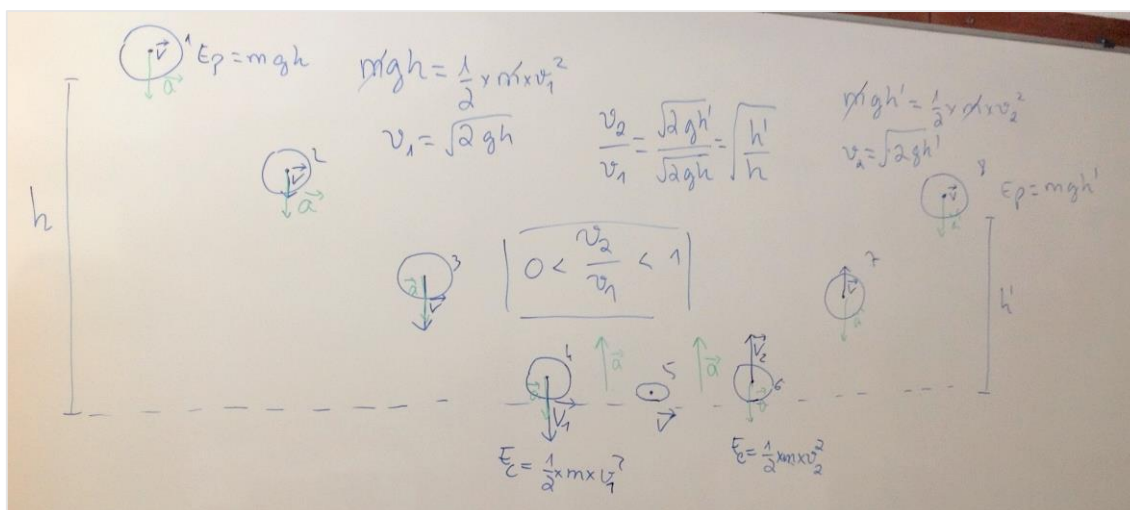 1 Ep = mgh
v⃗
a⃗
mgh = 1/2 × m × v₁²
v₁ = √2gh
v₂/v₁ = √2gh'/√2gh = √h'/h
mgh' = 1/2 × m × v₂²
v₂ = √2gh'
2
v⃗
a⃗
8 Ep = mgh'
v⃗
a⃗
h
3
a⃗
v⃗
0 < v₂/v₁ < 1
7
v⃗
a⃗
h'
4
a⃗
v⃗₁
a⃗
5
v⃗
a⃗
v⃗₂
6
Ec = 1/2 × m × v₁²
Ec = 1/2 × m × v₂²